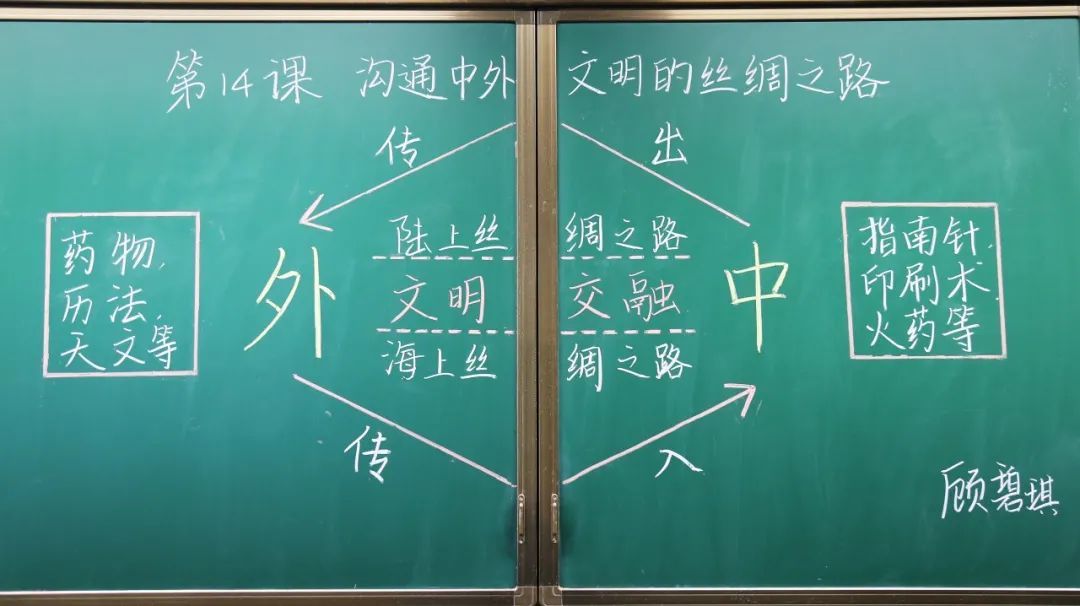 第14课 沟通中外文明的丝绸之路
传 出
陆上丝绸之路
外 文明交融 中
海上丝绸之路
传 入
药物,
历法,
天文等
指南针,
印刷术
火药等
顾碧琪